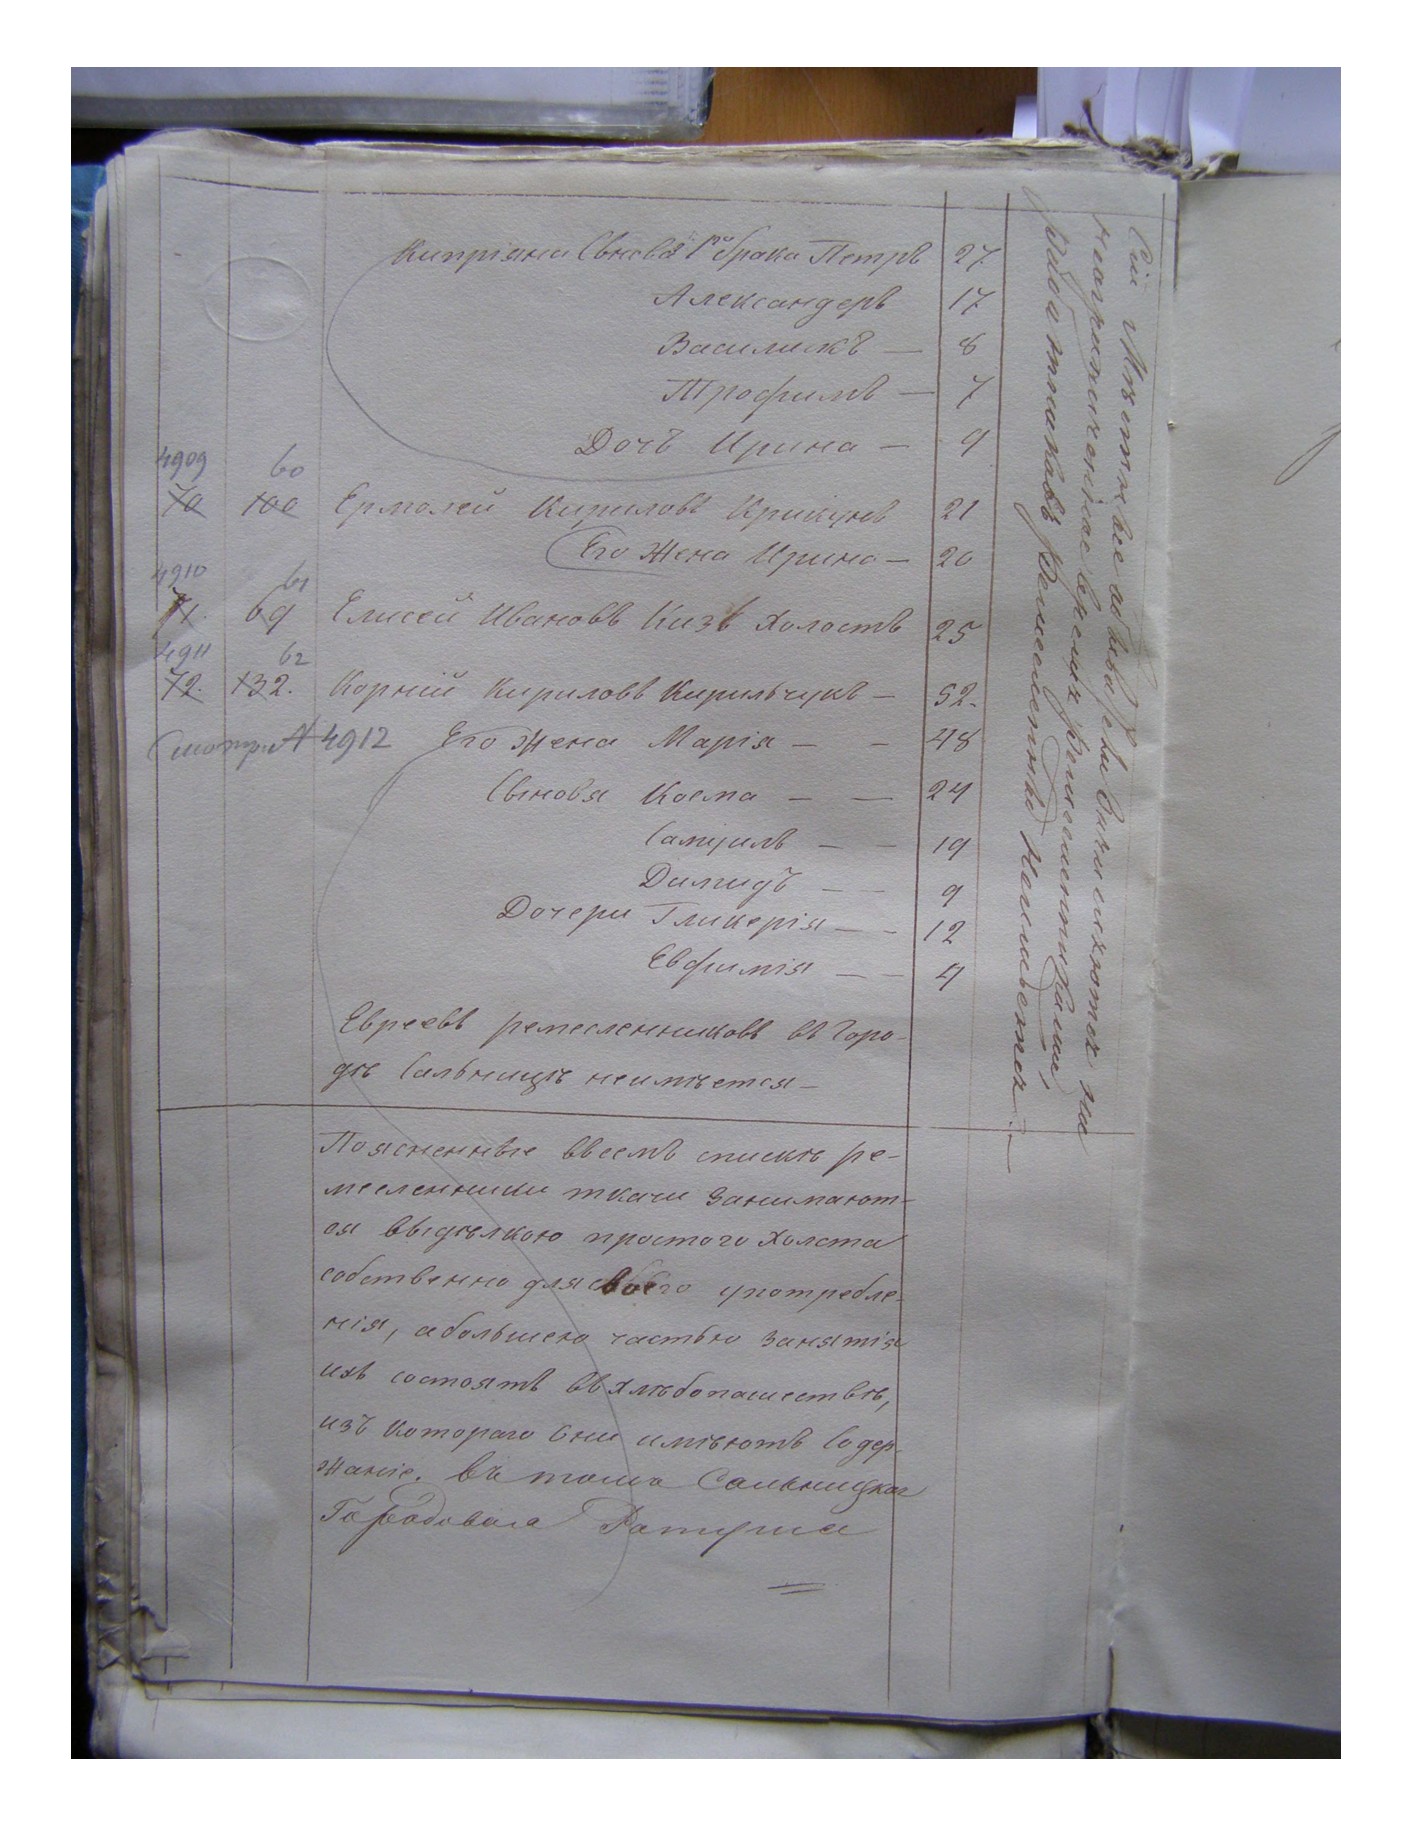 Кипріяна Сыновья 1го брака Петръ 27
Александеръ 17
Василикъ — 8
Трофимъ — 7
Дочь Ирина — 9
4909 60
70 100 Ермолей Кириловъ Крикунъ 21
Его Жена Ирина — 20
4910 61
71. 69 Елисей Ивановъ Кизъ холостъ 25
4911 62
72. 132. Корній Кириловъ Кирильчукъ — 52.
Смотри № 4912 Его Жена Марія — — 48
Сыновья Косма — — 24
Самуилъ — — 19
Димидъ — — 9
Дочери Гликерія — — 12
Евфимія — — 4
Евреевъ ремесленниковъ въ Горо-
дѣ Сальницѣ неимѣется —
Поясненные въсемъ спискѣ ре-
месленники ткачи занимают-
ся выдѣлкою простого холста
собственно для своего употребле-
нія, абольшею частью занятія
ихъ состоятъ въ хлѣбопашествѣ,
изъ котораго они имѣютъ Содер-
жаніе. Въ томъ Сальницкая
Городовая Ратуша
Сіи Мѣстные
неограниченное время Ремесленниками,
Ремесленники